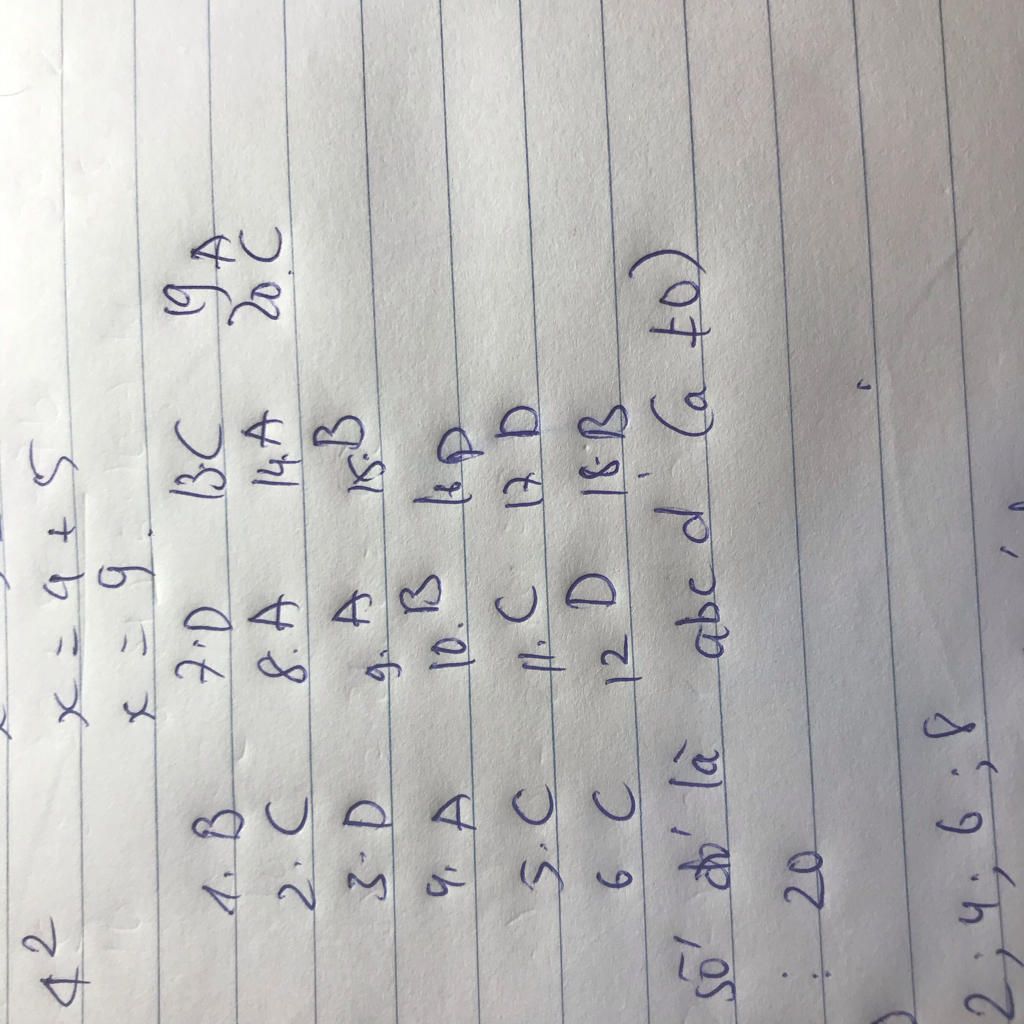 4 2
x = 4 + 5
x = 9
1. B 7. D 13. C 19 A
2. C 8. A 14. A 20. C
3. D 9. A 15. B
4. A 10. B 16 D
5. C 11. C 17 D
6 C 12 D 18. B
số đó là abc d (a ≠ 0)
: 20
2; 4; 6; 8